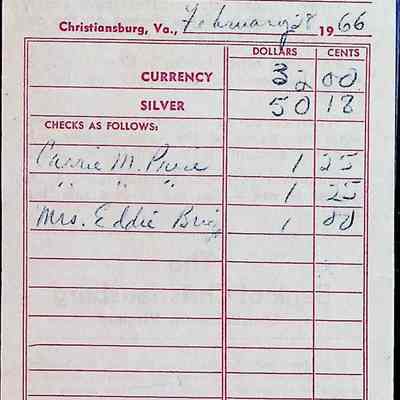 Christiansburg, Va., February 28 1966
DOLLARS CENTS
CURRENCY 32 00
SILVER 50 18
CHECKS AS FOLLOWS:
Carrie M. Price 1 25
" " " 1 25
Mrs. Eddie 1 00